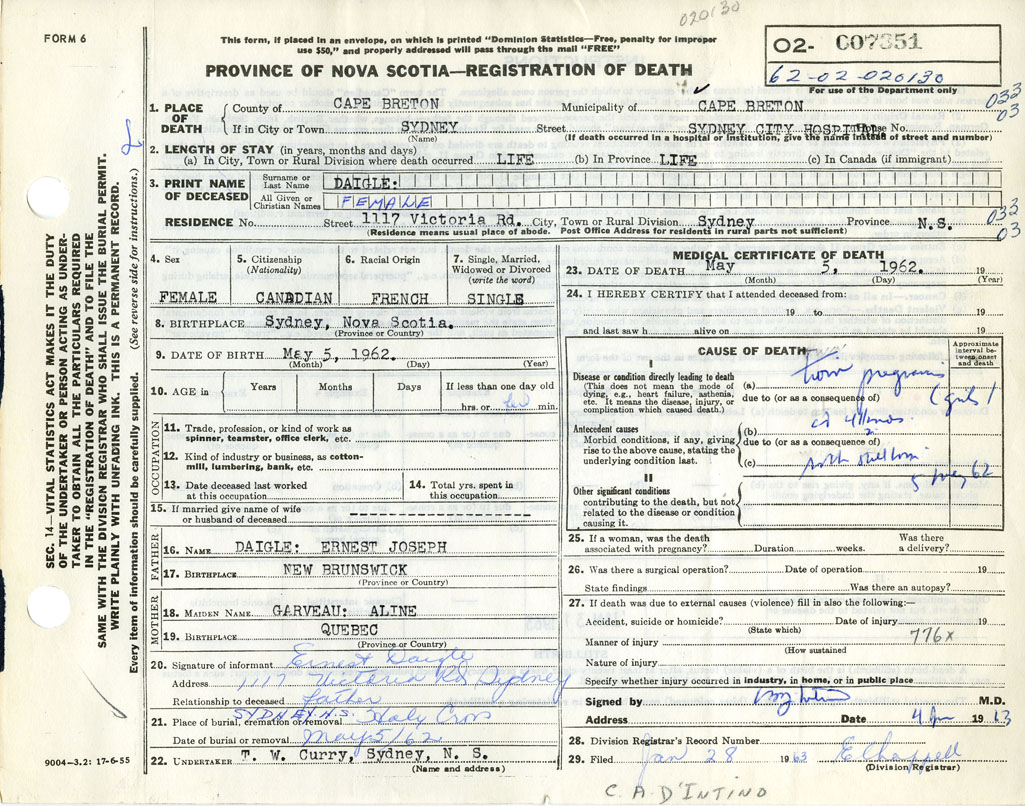 020130
FORM 6
This form, if placed in an envelope, on which is printed "Dominion Statistics—Free, penalty for improper
use $50," and properly addressed will pass through the mail "FREE"
O2- CO7351
62-02-020130
For use of the Department only
PROVINCE OF NOVA SCOTIA—REGISTRATION OF DEATH
SEC. 14—VITAL STATISTICS ACT MAKES IT THE DUTY
OF THE UNDERTAKER OR PERSON ACTING AS UNDER-
TAKER TO OBTAIN ALL THE PARTICULARS REQUIRED
IN THE "REGISTRATION OF DEATH" AND TO FILE THE
SAME WITH THE DIVISION REGISTRAR WHO SHALL ISSUE THE BURIAL PERMIT.
WRITE PLAINLY WITH UNFADING INK. THIS IS A PERMANENT RECORD.
Every item of information should be carefully supplied. (See reverse side for instructions.)
1. PLACE OF DEATH
County of CAPE BRETON Municipality of CAPE BRETON
033
03
If in City or Town SYDNEY Street SYDNEY CITY HOSPITAL House No.
(Name) (If death occurred in a hospital or institution, give the name instead of street and number)
2. LENGTH OF STAY (in years, months and days)
(a) In City, Town or Rural Division where death occurred LIFE (b) In Province LIFE (c) In Canada (if immigrant)
3. PRINT NAME OF DECEASED
Surname or Last Name DAIGLE:
All Given or Christian Names FEMALE
RESIDENCE No. Street 1117 Victoria Rd. City, Town or Rural Division Sydney Province N.S.
033
03
(Residence means usual place of abode. Post Office Address for residents in rural parts not sufficient)
4. Sex
FEMALE
5. Citizenship
(Nationality)
CANADIAN
6. Racial Origin
FRENCH
7. Single, Married,
Widowed or Divorced
(write the word)
SINGLE
8. BIRTHPLACE Sydney, Nova Scotia.
(Province or Country)
9. DATE OF BIRTH May 5, 1962.
(Month) (Day) (Year)
10. AGE in
Years Months Days If less than one day old
hrs. or few min.
OCCUPATION
11. Trade, profession, or kind of work as
spinner, teamster, office clerk, etc.
12. Kind of industry or business, as cotton-
mill, lumbering, bank, etc.
13. Date deceased last worked
at this occupation
14. Total yrs. spent in
this occupation
15. If married give name of wife
or husband of deceased
FATHER
16. NAME DAIGLE: ERNEST JOSEPH
17. BIRTHPLACE NEW BRUNSWICK
(Province or Country)
MOTHER
18. MAIDEN NAME GARVEAU: ALINE
19. BIRTHPLACE QUEBEC
(Province or Country)
20. Signature of informant Ernest Daigle
Address 1117 Victoria Rd Sydney
Relationship to deceased father
21. Place of burial, cremation or removal SYDNEY. N.S. Holy Cross
Date of burial or removal May 5/62
22. UNDERTAKER T. W. Curry, Sydney, N. S.
(Name and address)
MEDICAL CERTIFICATE OF DEATH
23. DATE OF DEATH May 5, 1962. 19
(Month) (Day) (Year)
24. I HEREBY CERTIFY that I attended deceased from:
19 to 19
and last saw h alive on 19
CAUSE OF DEATH
Approximate interval between onset and death
I
Disease or condition directly leading to death
(This does not mean the mode of
dying, e.g., heart failure, asthenia,
etc. It means the disease, injury, or
complication which caused death.)
(a)
due to (or as a consequence of)
Antecedent causes
Morbid conditions, if any, giving
rise to the above cause, stating the
underlying condition last.
(b)
due to (or as a consequence of)
(c)
5 May 62
II
Other significant conditions
contributing to the death, but not
related to the disease or condition
causing it.
25. If a woman, was the death
associated with pregnancy? Duration weeks. Was there
a delivery?
26. Was there a surgical operation? Date of operation 19
State findings Was there an autopsy?
27. If death was due to external causes (violence) fill in also the following:—
Accident, suicide or homicide? Date of injury 19
(State which)
776x
Manner of injury
(How sustained
Nature of injury
Specify whether injury occurred in industry, in home, or in public place
Signed by M.D.
Address Date 4 Jan 1963
28. Division Registrar's Record Number
29. Filed Jan 28 1963 E Chappell
(Division Registrar)
9004—3.2: 17-6-55
C. A D'INTINO